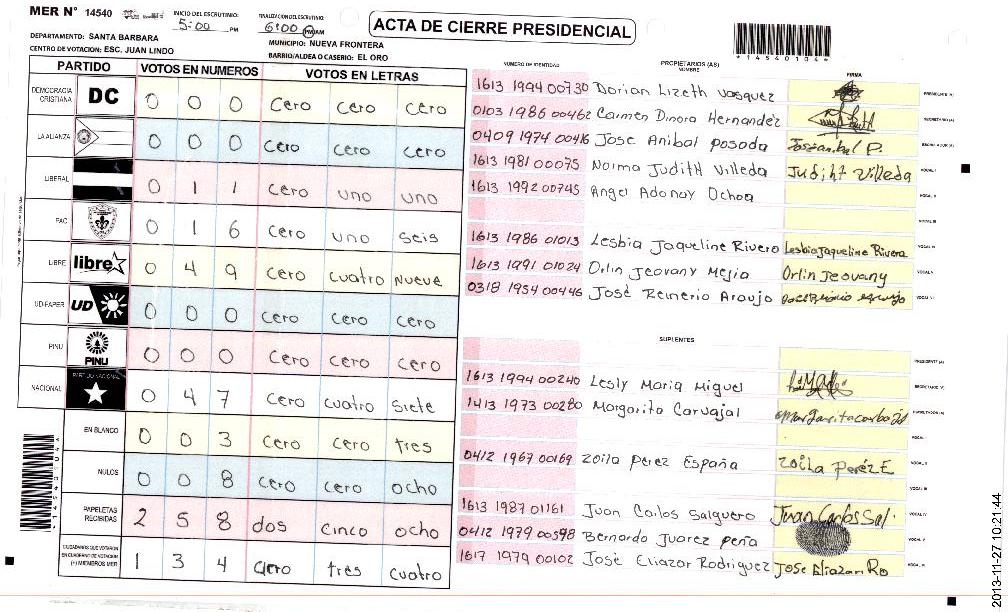 MER N° 14540
INICIO DEL ESCRUTINIO: 5:00 PM
FINALIZACION DEL ESCRUTINIO: 6:00 PM AM
ACTA DE CIERRE PRESIDENCIAL
*14540104*
DEPARTAMENTO: SANTA BARBARA
MUNICIPIO: NUEVA FRONTERA
CENTRO DE VOTACION: ESC. JUAN LINDO
BARRIO/ALDEA O CASERIO: EL ORO
PARTIDO VOTOS EN NUMEROS VOTOS EN LETRAS
DEMOCRACIA CRISTIANA DC 0 0 0 Cero cero cero
LA ALIANZA 0 0 0 Cero cero cero
LIBERAL 0 1 1 Cero uno uno
PAC 0 1 6 Cero uno seis
LIBRE libre 0 4 9 Cero cuatro Nueve
UD-FAPER UD 0 0 0 Cero cero cero
PINU PINU 0 0 0 Cero cero cero
NACIONAL PARTIDO NACIONAL 0 4 7 Cero cuatro siete
EN BLANCO 0 0 3 Cero cero tres
NULOS 0 0 8 cero cero ocho
PAPELETAS RECIBIDAS 2 5 8 dos cinco ocho
CIUDADANOS QUE VOTARON EN CUADERNO DE VOTACION (+) MIEMBROS MER 1 3 4 tres cuatro
NUMERO DE IDENTIDAD PROPIETARIOS (AS) NOMBRE FIRMA
1613 1994 00730 Dorian Lizeth Vasquez PRESIDENTE (A)
0103 1986 00462 Carmen Dinora Hernandez SECRETARIO (A)
0409 1974 00416 Jose Anibal posada Joseanibal P. ESCRUTADOR (A)
1613 1981 00075 Norma Judith Villeda Judiht Villeda VOCAL I
1613 1992 00745 Angel Adonay Ochoa VOCAL II
VOCAL III
1613 1986 01013 Lesbia Jaqueline Rivero Lesbia Jaqueline Rivera VOCAL IV
1613 1991 01024 Orlin Jeovany Mejia Orlin Jeovany VOCAL V
0318 1954 00446 José Reinerio Araujo VOCAL VI
SUPLENTES
PRESIDENTE (A)
1613 1994 00240 Lesly Maria Miguel SECRETARIO (A)
1413 1973 00280 Margarito Carvajal ESCRUTADOR (A)
VOCAL I
0412 1967 00169 Zoila Perez España Zoila Peréz E VOCAL II
VOCAL III
1613 1987 01161 Juan Carlos Salguero Juan Carlos Sal. VOCAL IV
0412 1979 00598 Bernardo Juarez peña VOCAL V
1617 1979 00102 José Eliazar Rodriguez Jose Eliazar Ro VOCAL VI
2013-11-27 10:21:44